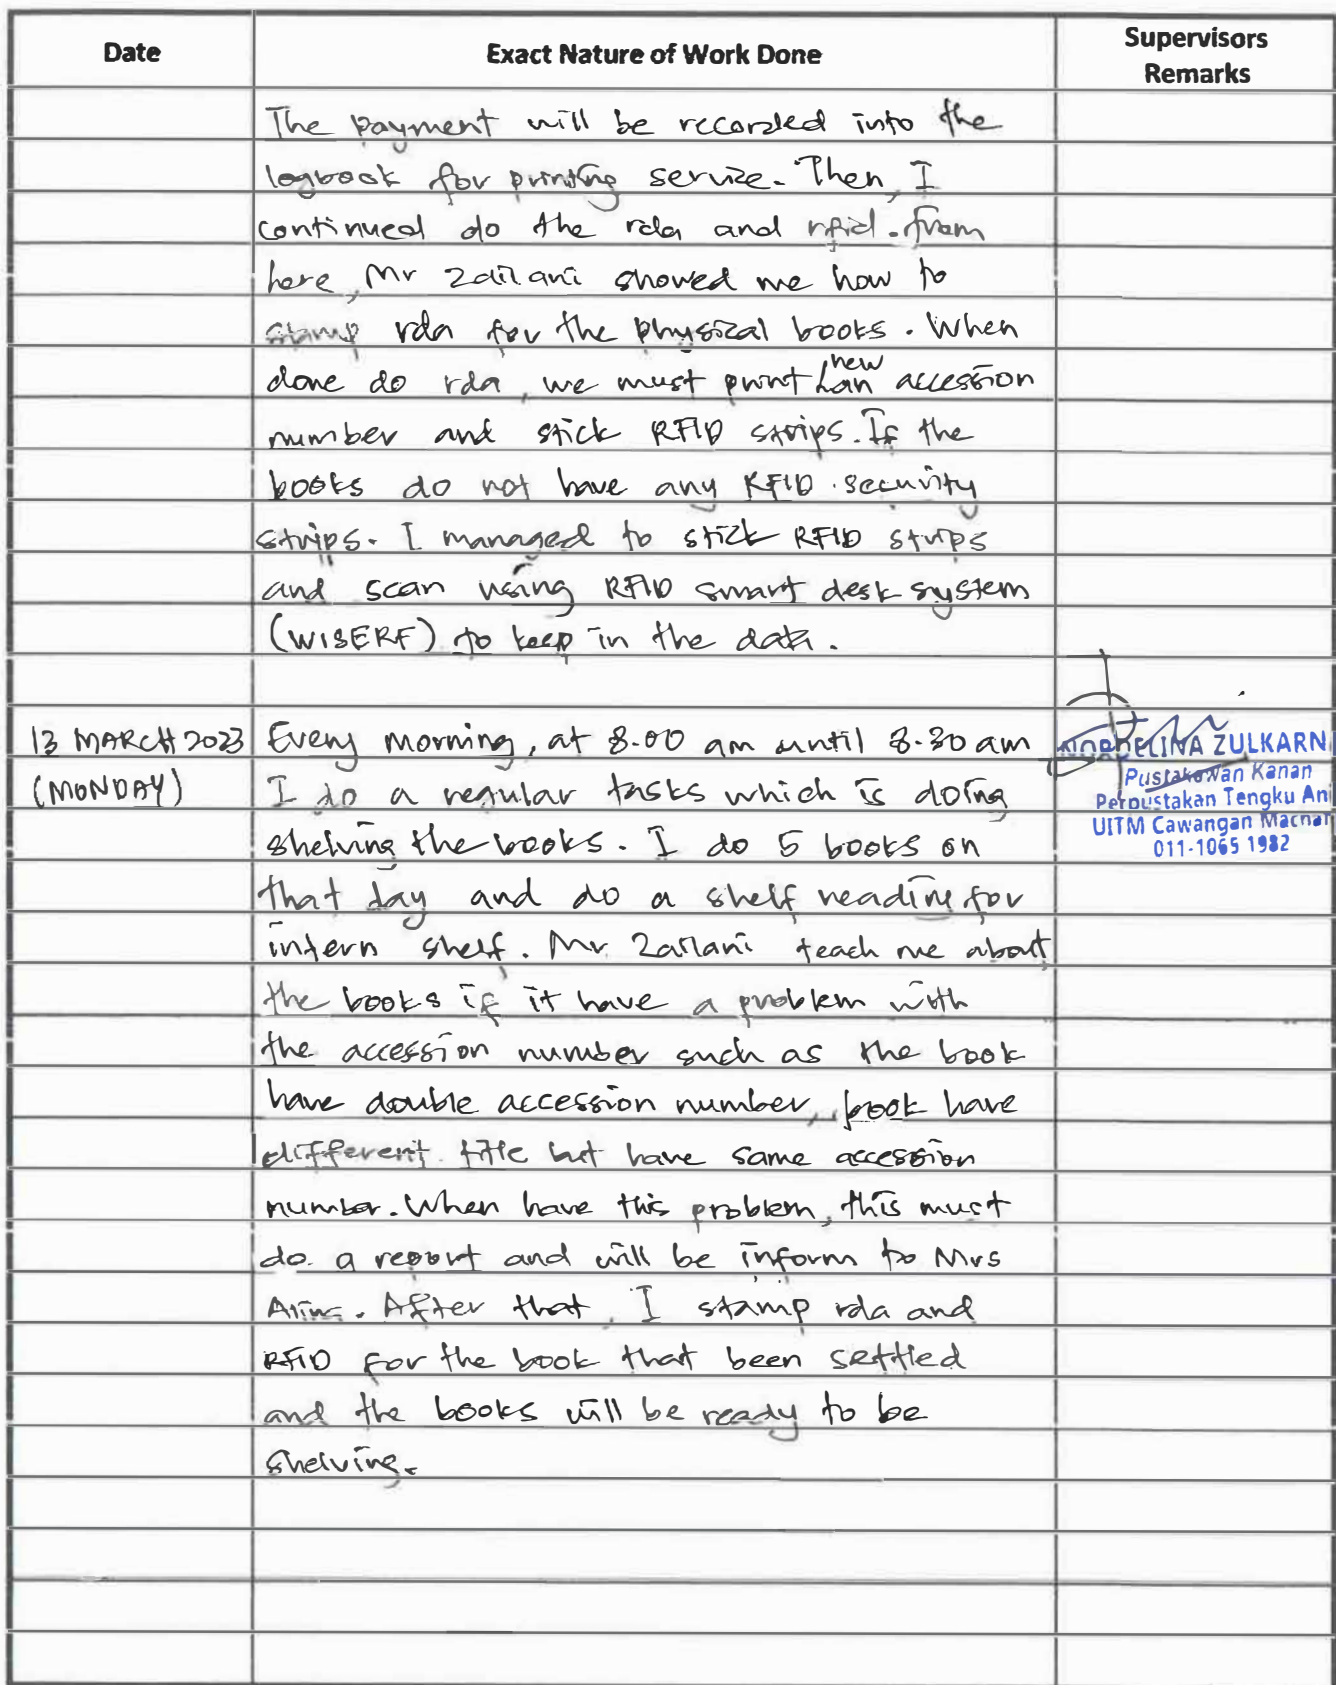 Date
Exact Nature of Work Done
Supervisors
Remarks
The payment will be recorded into the
logbook for printing service. Then, I
continued do the rda and rfid. from
here, Mr Zailani showed me how to
stamp rda for the physical books. When
done do rda, we must print an new accession
number and stick RFID strips. If the
books do not have any RFID security
strips. I managed to stick RFID strips
and scan using RFID smart desk system
(WISERF) to keep in the data.
13 MARCH 2023
(MONDAY)
Every morning, at 8.00 am until 8.30 am
I do a regular tasks which is doing
shelving the books. I do 5 books on
that day and do a shelf reading for
intern shelf. Mr. Zailani teach me about
the books if it have a problem with
the accession number such as the book
have double accession number, book have
different title but have same accession
number. When have this problem, this must
do a report and will be inform to Mrs
After that, I stamp rda and
RFID for the book that been settled
and the books will be ready to be
shelving.
ZULKARN
Pustakawan Kanan
Perpustakan Tengku An
UITM Cawangan Machan
011-1065 1982